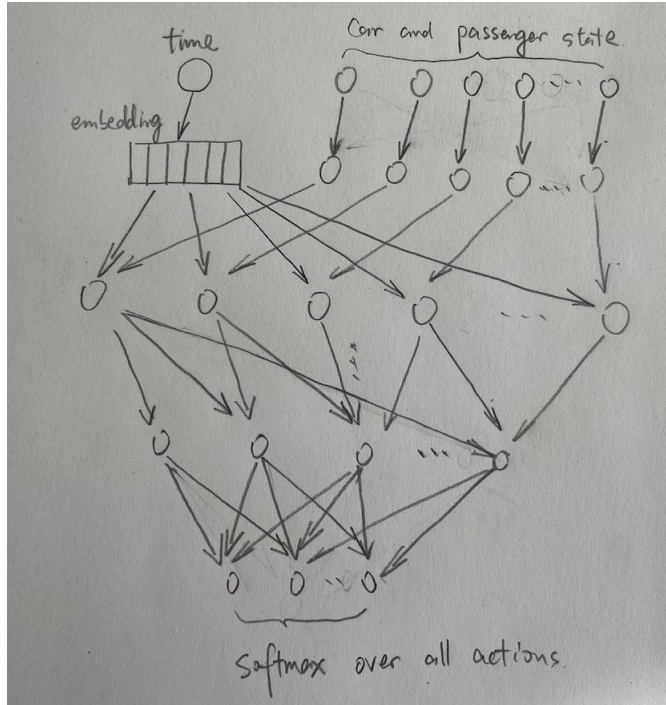 time
Car and passenger state
embedding
Softmax over all actions.